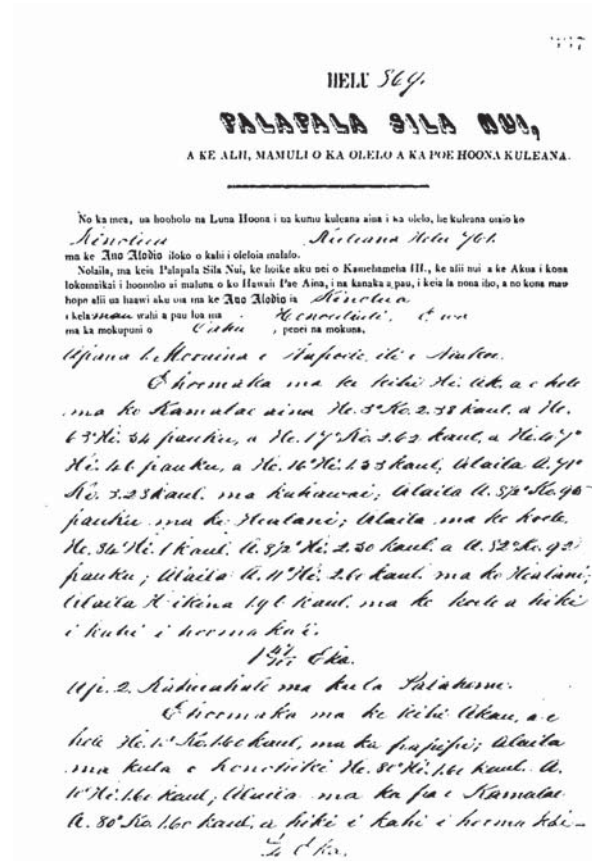 HELU 569.
PALAPALA SILA NUI,
A KE ALII, MAMULI O KA OLELO A KA POE HOONA KULEANA.
No ka mea, ua hooholo na Luna Hoona i na kumu kuleana aina i ka olelo, he kuleana oiaio ko
Kinolua Kuleana Helu 761.
ma ke Ano Alodio iloko o kahi i oleloia malalo.
Nolaila, ma keia Palapala Sila Nui, ke hoike aku nei o Kamehameha III., ke alii nui a ke Akua i kona
lokomaikai i hoonoho ai maluna o ko Hawaii Pae Aina, i na kanaka a pau, i keia la nona iho, a no kona mau
hope alii ua haawi aku oia ma ke Ano Alodio ia Kinolua
i kela mau wahi a pau loa ma Honouliuli, Ewa
ma ka mokupuni o Oahu, penei na mokuna.
Apana 1. Mooaina o
E hoomaka ma ke kihi Hi. Ak. a e holo
ma ko Kamalae aina He. 3° Ko. 2.38 kaul. a He.
63° Hi. 34 pauku, a He. 17° Ko. 2.62 kaul, a He. 47°
Hi. 46 pauku, a He. 16° Hi. 1.33 kaul, Alaila A. 71°
Ko. 3.23 kaul. ma kahawai; Alaila A. 8½° Ko. 95
pauku ma ko Healani; Alaila ma ke
He. 84° Hi. 1 kaul. A. 8½° Hi. 2.30 kaul. a A. 52° Ko. 92
pauku; Alaila A. 11° Hi. 2.60 kaul. ma ko Healani;
Alaila Hikina 1.96 kaul. ma ke a hiki
i kahi i hoomaka'i.
Eka.
Ap. 2. Pahuahale ma kula
E hoomaka ma ke kihi Akau, a e
holo He. Ko. 1.60 kaul, ma ka papipi; Alaila
ma kula o konohiki He. 80° Hi. 1.60 kaul. A.
10° Hi. 1.60 kaul; Alaila ma ka pa o Kamalae
A. 80° Ko. 1.60 kaul, a hiki i kahi i hoomaka'i—
Eka.